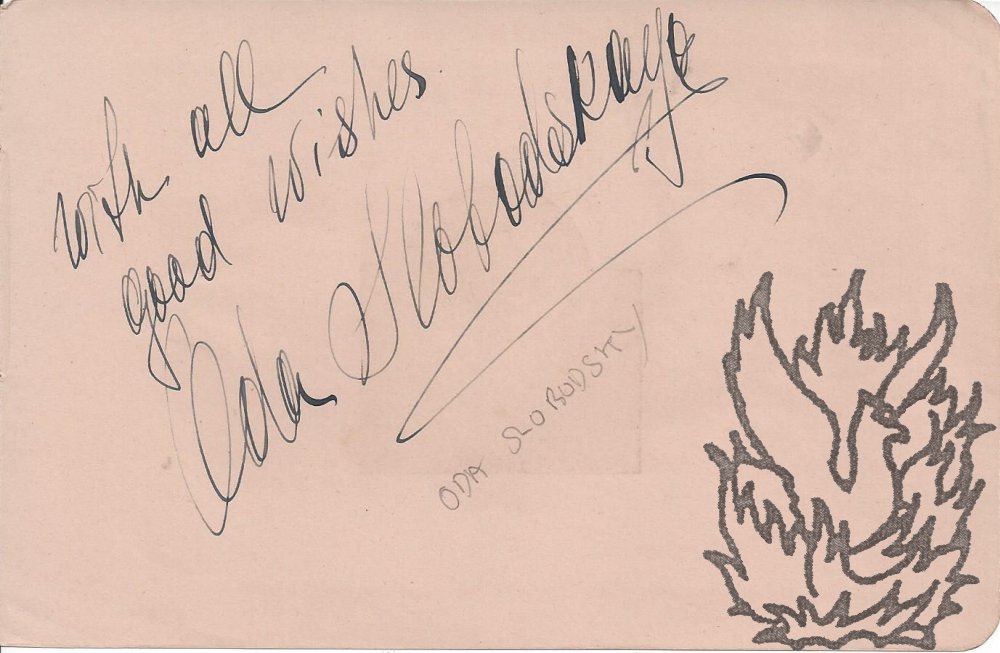 with all
good wishes
Oda Slobodskaya
ODA SLOBODSKY